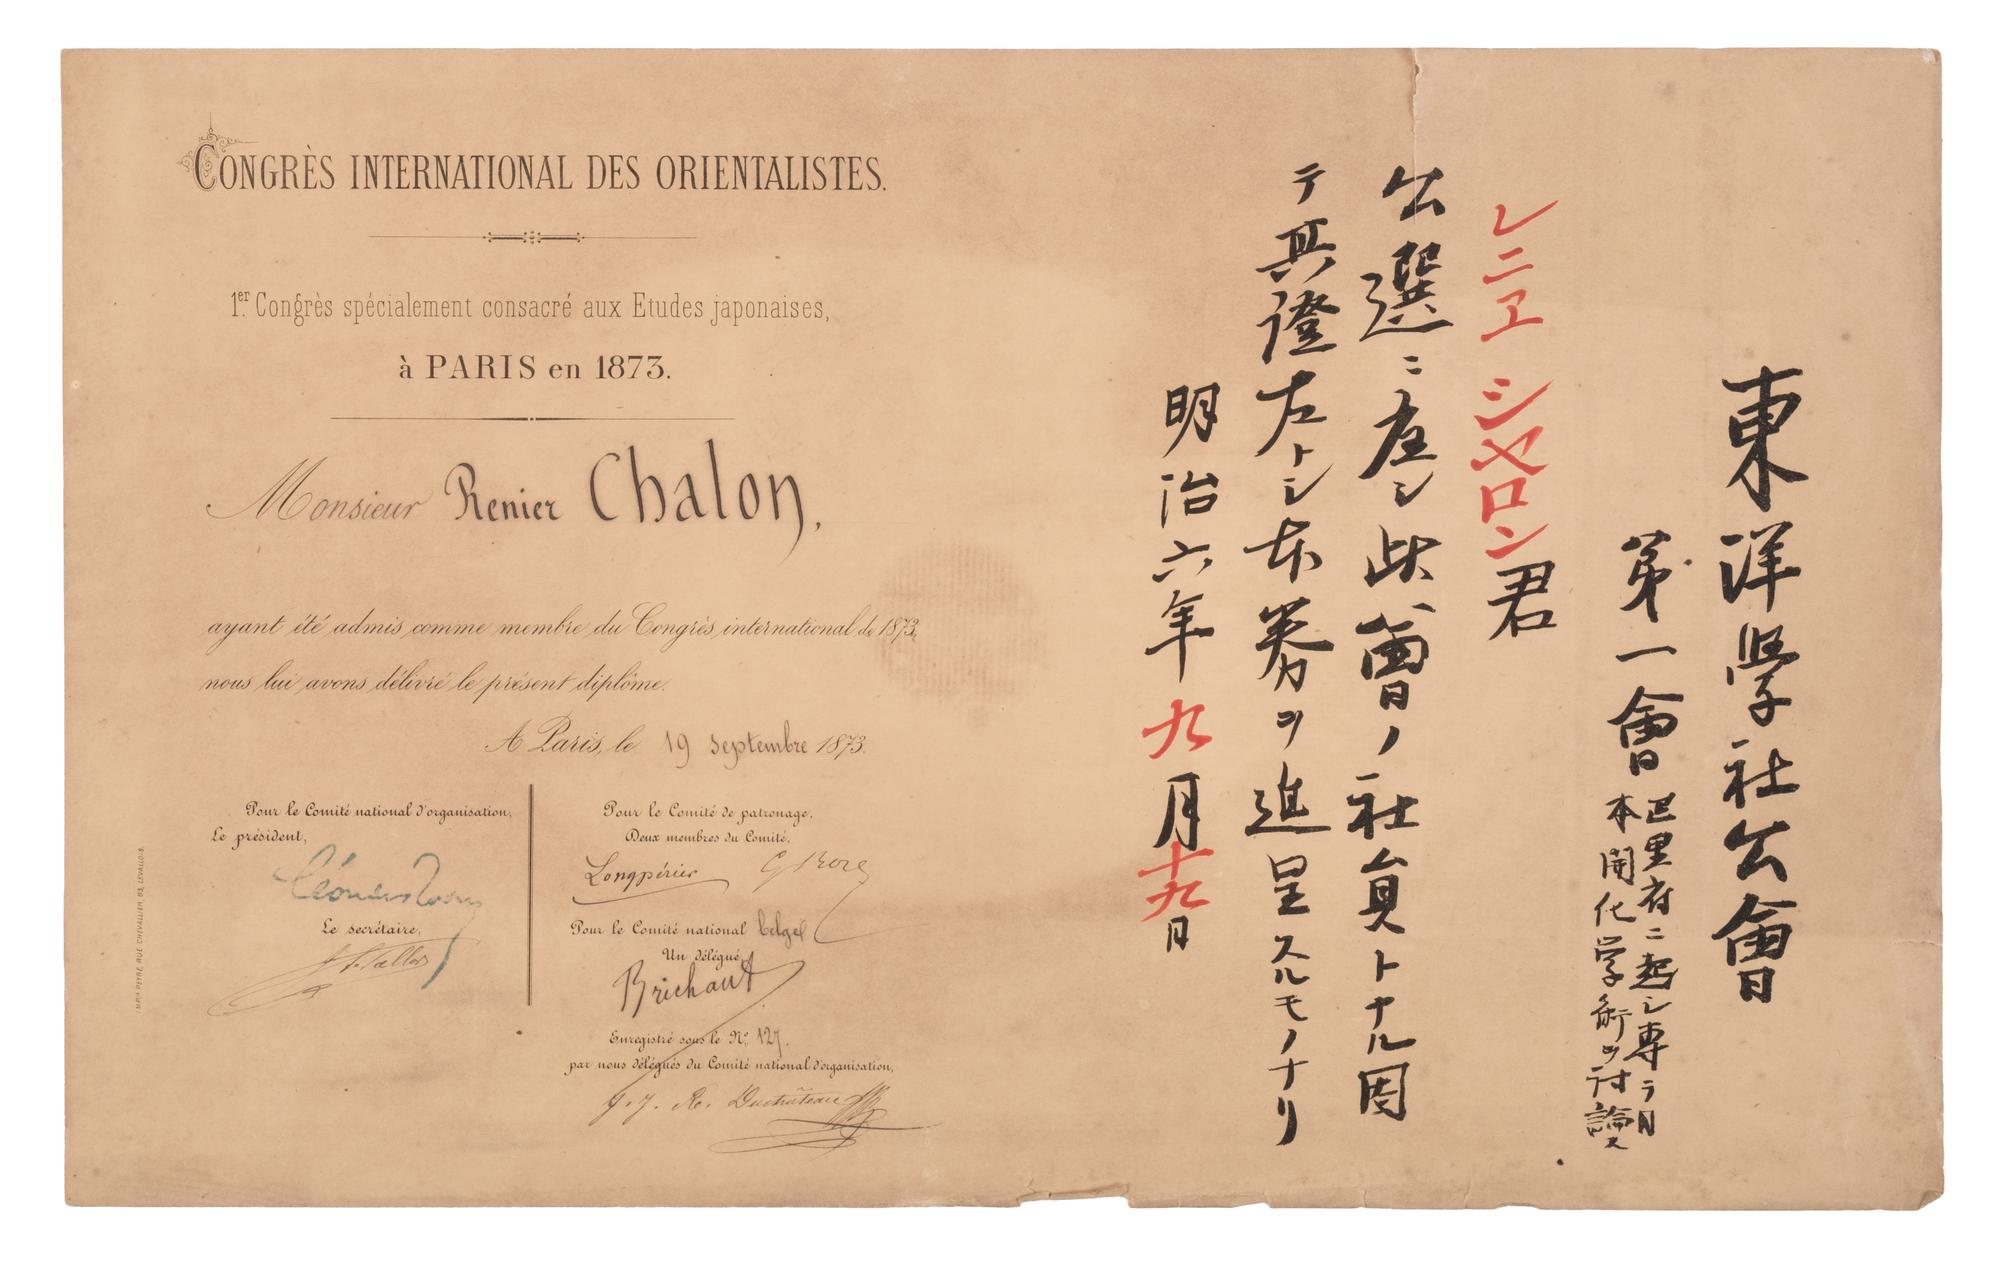 CONGRÈS INTERNATIONAL DES ORIENTALISTES.
1er Congrès spécialement consacré aux Etudes japonaises,
à PARIS en 1873.
Monsieur Renier Chalon,
ayant été admis comme membre du Congrès international de 1873,
nous lui avons délivré le présent diplôme.
A Paris, le 19 septembre 1873.
Pour le Comité national d'organisation,
Le président,
Le secrétaire,
Pour le Comité de patronage,
Deux membres du Comité,
Longpérier
Pour le Comité national belge
Un délégué
Brichaut
Enregistré sous le No 127.
par nous délégués du Comité national d'organisation,
IMPie PEYRE, RUE CHEVALLIER, 63, LEVALLOIS.
東洋學社公會
第一會
巴里府ニ起シ専ラ日
本開化学術ヲ討論ス
レニヱ シヤロン君
公選ニ應シ此會ノ社員トナル因
テ其證左トシ本券ヲ進呈スルモノナリ
明治六年九月十九日